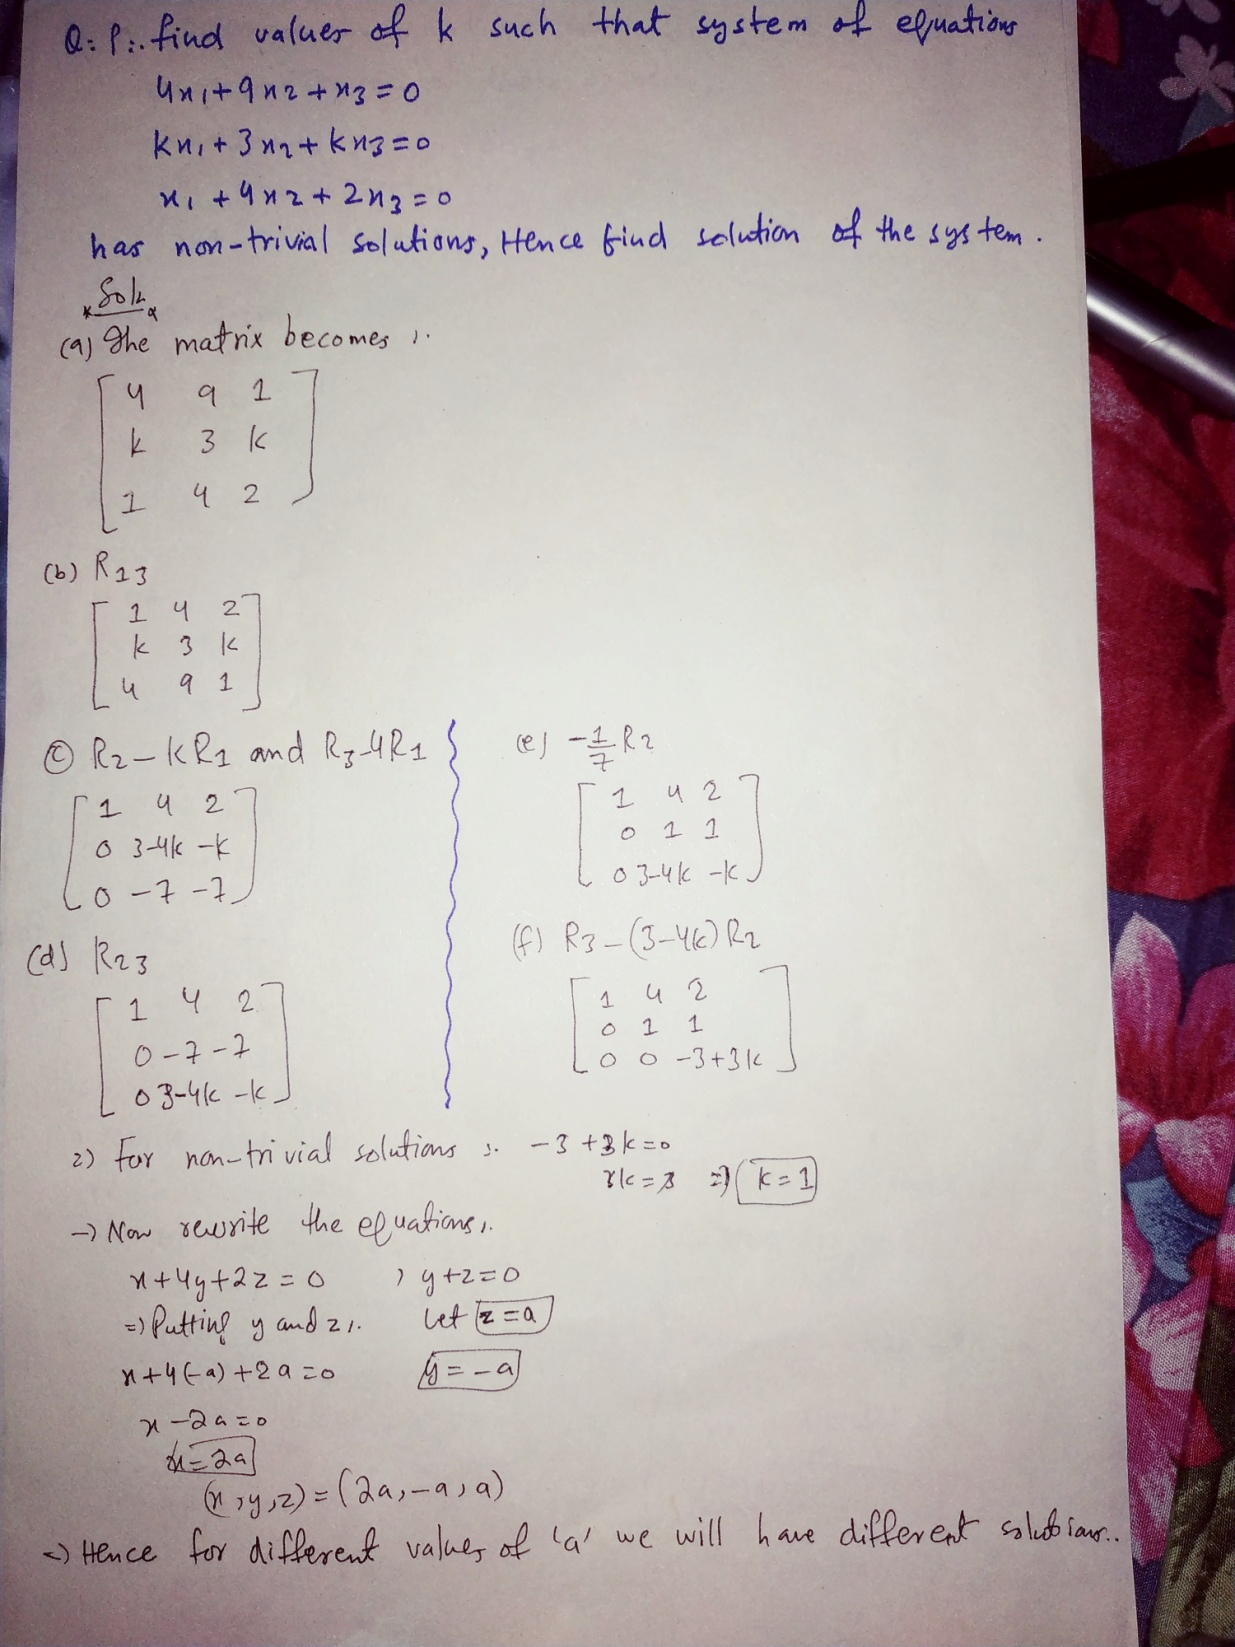 Q: P:. find values of k such that system of equations
4x1+9x2+x3=0
kx1+3x2+kx3=0
x1+4x2+2x3=0
has non-trivial solutions, Hence find solution of the system.
Sol:
(a) The matrix becomes :.
4 9 1
k 3 k
1 4 2
(b) R13
1 4 2
k 3 k
4 9 1
(c) R2-kR1 and R3-4R1
1 4 2
0 3-4k -k
0 -7 -7
(d) R23
1 4 2
0 -7 -7
0 3-4k -k
(e) -1/7 R2
1 4 2
0 1 1
0 3-4k -k
(f) R3-(3-4k)R2
1 4 2
0 1 1
0 0 -3+3k
2) For non-trivial solutions :. -3+3k=0
3k=3 => k=1
-> Now rewrite the equations:.
x+4y+2z=0 , y+z=0
=> Putting y and z:. Let z=a
x+4(-a)+2a=0 y=-a
x-2a=0
x=2a
(x,y,z)=(2a,-a,a)
=> Hence for different values of 'a' we will have different solutions..